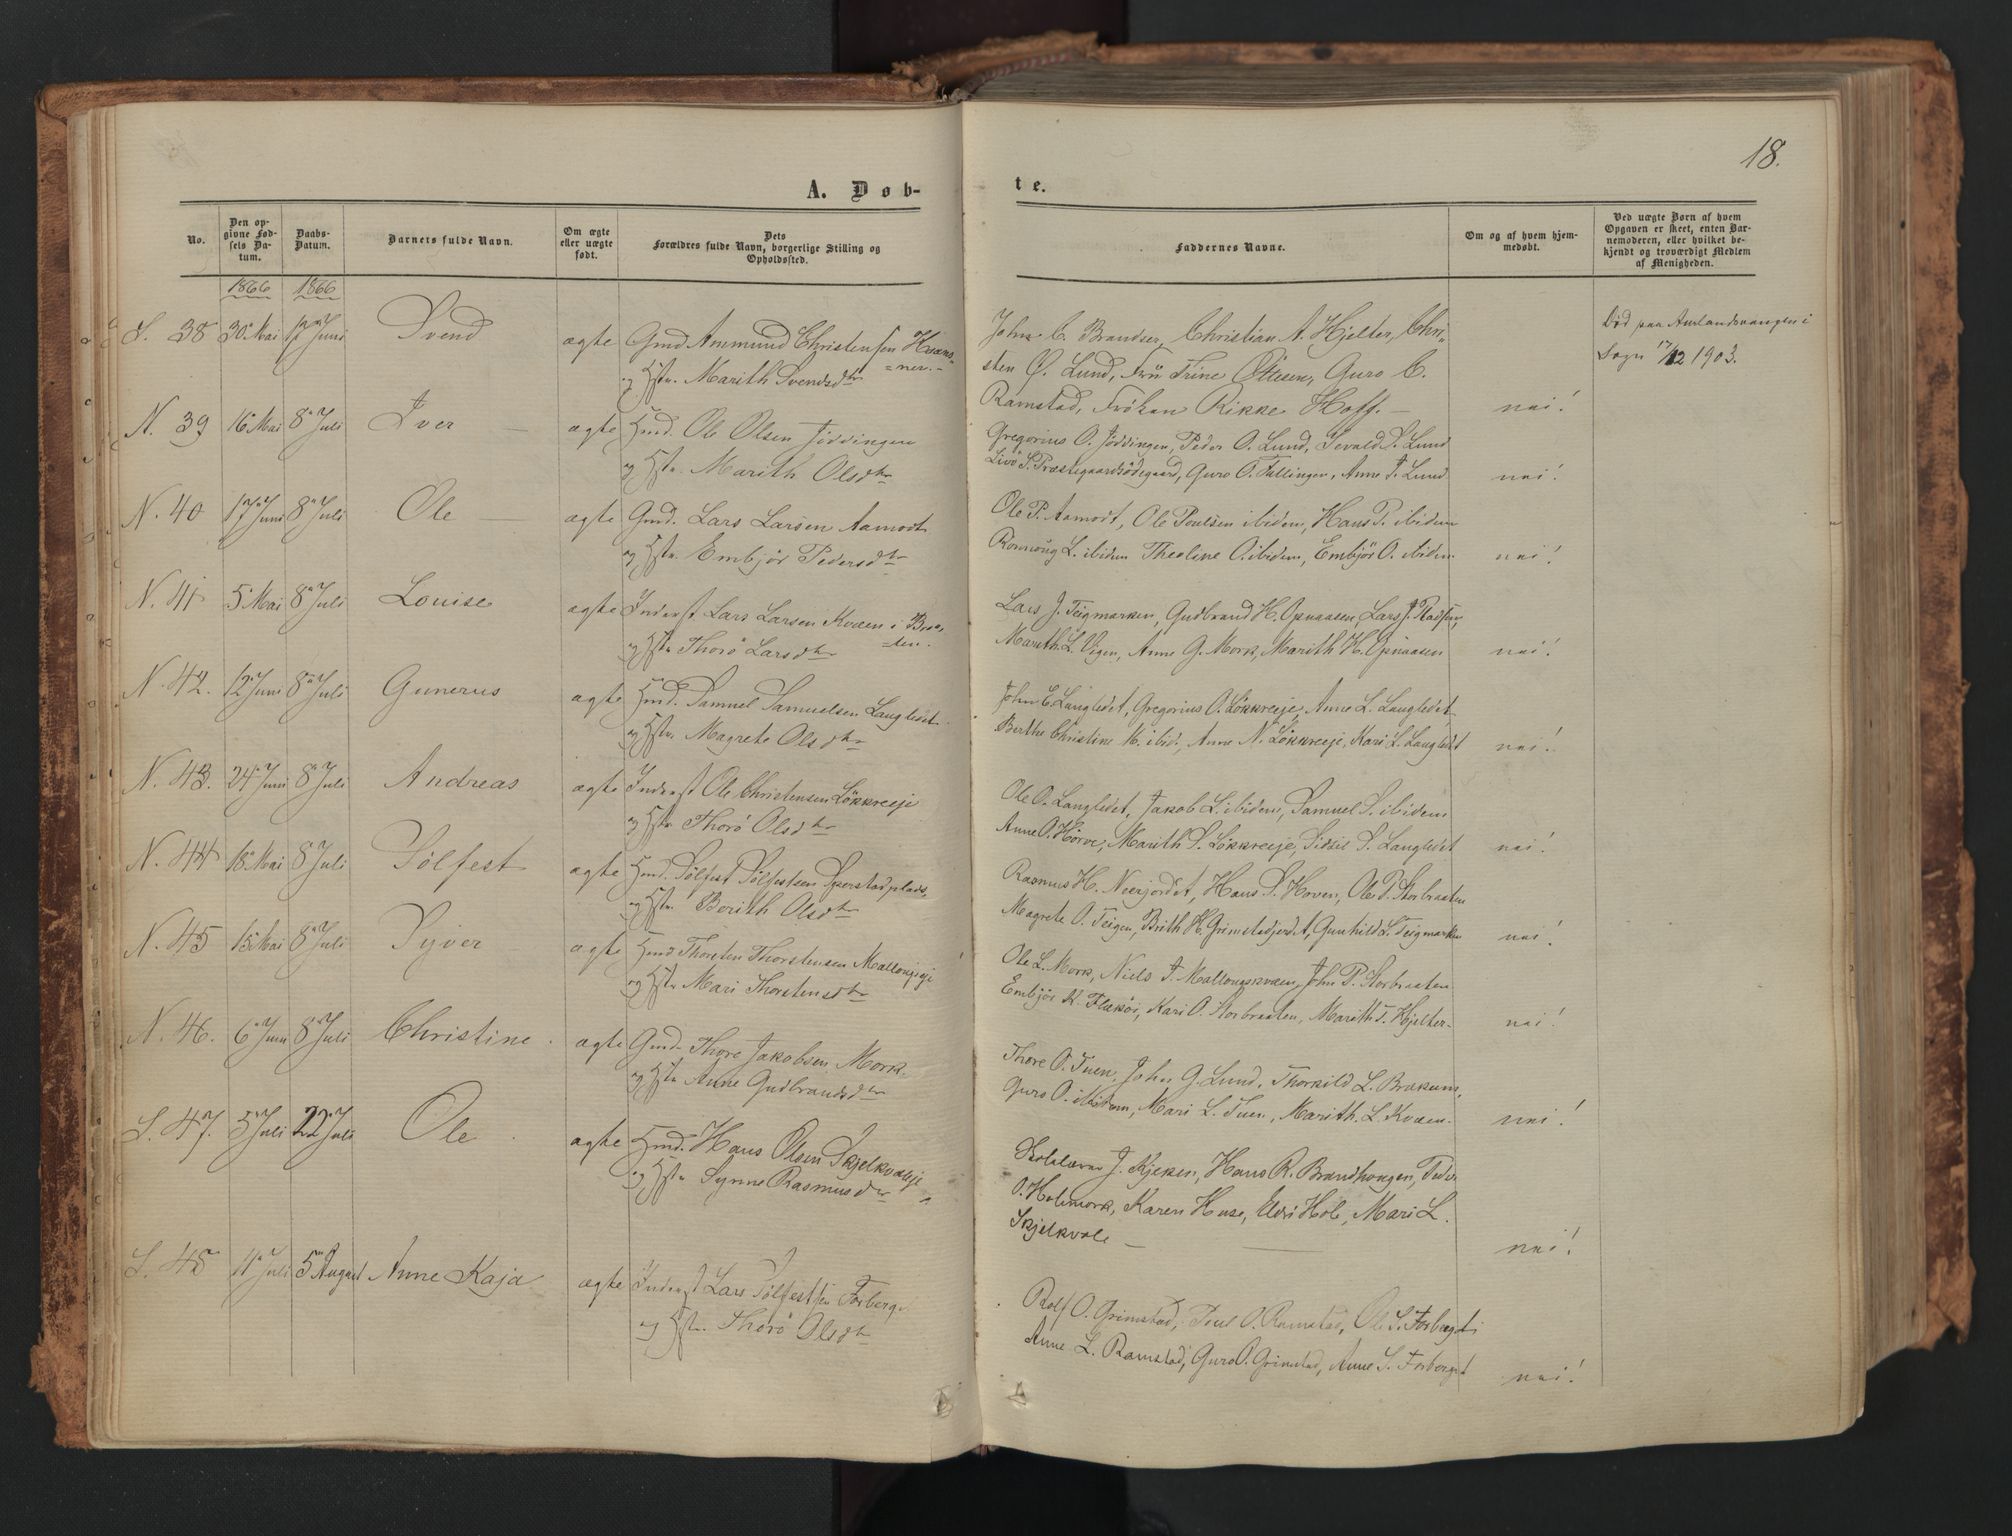 18.
A. Døb-
te.
No.
Den op-
givne Fød-
sels Da-
tum.
Daabs-
Datum.
Barnets fulde Navn.
Om ægte
eller uægte
født.
Dets
Forældres fulde Navn, borgerlige Stilling og
Opholdssted.
Faddernes Navne.
Om og af hvem hjem-
medøbt.
Ved uægte Børn af hvem
Opgaven er skeet, enten Bar-
nemoderen, eller hvilket be-
kjendt og troværdigt Medlem
af Menigheden.
1866 1866
S. 38 30 Mai 17 Juni Svend ægte Gmd Ammund Christensen
og Hstr. Marith Svendsdtr
John C. Brandser, Christian A. Hjelter, Chri-
sten O. Lund, Frü Trine Ottesen, Guro C.
Ramstad, Frøken Rikke Hoff. – nei!
Død paa Aurlandsvangen i
Sogn 17/12 1903.
N. 39 16 Mai 8 Juli Iver – ægte Hmd. Ole Olsen Jöddingen
og Hstr. Marith Olsdtr
Gregorius O. Jöddingen, Peder O. Lund, Sevald S. Lund
Livö S. Præstegaardsödegaard, Guro O. Tullingen, Anne T. Lund nei!
N. 40 17 Juni 8 Juli Ole – ægte Gmd. Lars Larsen Aamodt
og Hstr. Embjör Pedersdtr
Ole P. Aamodt, Ole Poulsen ibidem, Hans P. ibidem
Rönnoug L. ibidem Theoline O. ibidem, Embjör O. ibidem nei!
N. 41 5 Mai 8 Juli Louise ægte Inderst Lars Larsen Kvæen i Braa-
ten.
og Hstr Thorö Larsdtr
Lars J. Teigmarken, Gudbrand H. Opnaasen, Lars J.
Marith L. Vigen, Anne G. Mork, Marith H. Opnaasen nei!
N. 42. 12 Juni 8 Juli Gunerus ægte Hmd. Samuel Samuelsen Langledet
og Hstr. Magrete Olsdtr
John E. Langledet, Gregorius O. Løkkreeje, Anne L. Langledet
Berthe Christine M. ibid., Anne N. Løkkreeje, Kari L. Langledet nei!
N. 43. 24 Juni 8 Juli Andreas ægte Inderst Ole Christensen Løkkreeje
og Hstr Thorö Olsdtr
Ole O. Langledet, Jakob L. ibidem, Samuel S. ibidem
Anne O. Hörve, Marith S. Løkkreeje, Sidsil S. Langledet nei!
N. 44 18 Mai 8 Juli Sølfest ægte Hmd. Sølfest Sølfestsen Sperstadplads,
og Hstr. Berith Olsdtr
Rasmus H. Neerjordet, Hans S. Hoven, Ole P. Storbraaten
Magrete O. Teigen, Brith H. Grimstadjordet, Gunhild L. Teigmarken nei!
N. 45 15 Mai 8 Juli Syver ægte Hmd Thorsten Thorstensen
og Hstr Mari Thorstensdtr
Ole L. Mork, Niels T. John P. Storbraaten
Embjör K. Flækøi, Kari O. Storbraaten, Marith T. Hjelter. nei!
N. 46. 6 Juni 8 Juli Christine. ægte Gmd. Thore Jakobsen Mork.
og Hstr Anne Gudbrandsdtr
Thore O. Tuen, John G. Lund, Thorkild L. Brækum,
Guro O. ibidem, Mari L. Tuen, Marith L. Kvæen. nei!
S. 47. 5 Juli 22 Juli Ole ægte Hmd. Hans Olsen Skjelkvaleje
og Hstr Synne Rasmusdtr
Skolelærer J. Kjeken, Hans R. Brandhougen, Peder
O. Holemork, Karen Huse, Eldri Hole, Mari L.
Skjelkvale – nei!
S. 48 11 Juli 5 August Anne Kaja ægte Inderst Lars Sølfestsen Forberge
og Hstr. Thorö Olsdtr
Rolf O. Grimstad, Poul O. Ramstad, Ole S. Forberget
Anne L. Ramstad, Guro O. Grimstad, Anne S. Forberget nei!